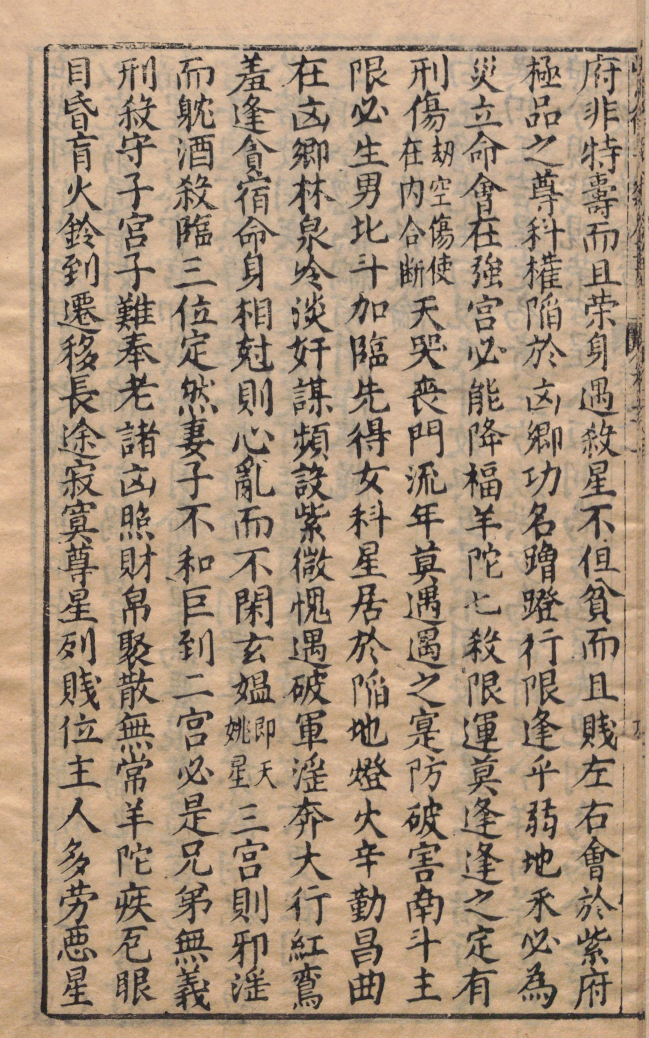 府非特壽而且荣身遇殺星不但貧而且賤左右會於紫府
極品之尊科權陷於凶鄉功名蹭蹬行限逢乎弱地未必為
災立命會在強宮必能降福羊陀七殺限運莫逢逢之定有
刑傷劫空傷使在内合断天哭喪門流年莫遇遇之寔防破害南斗主
限必生男北斗加臨先得女科星居於陷地燈火辛勤昌曲
在凶鄉林泉冷淡奸謀頻設紫微愧遇破軍淫奔大行紅鸞
羞逢貪宿命身相尅則心亂而不閑玄媪即天姚星三宮則邪淫
而躭酒殺臨三位定然妻子不和巨到二宮必是兄弟無義
刑殺守子宮子難奉老諸凶照財帛聚散無常羊陀疾厄眼
目昏盲火鈴到遷移長途寂寞尊星列賤位主人多劳悪星